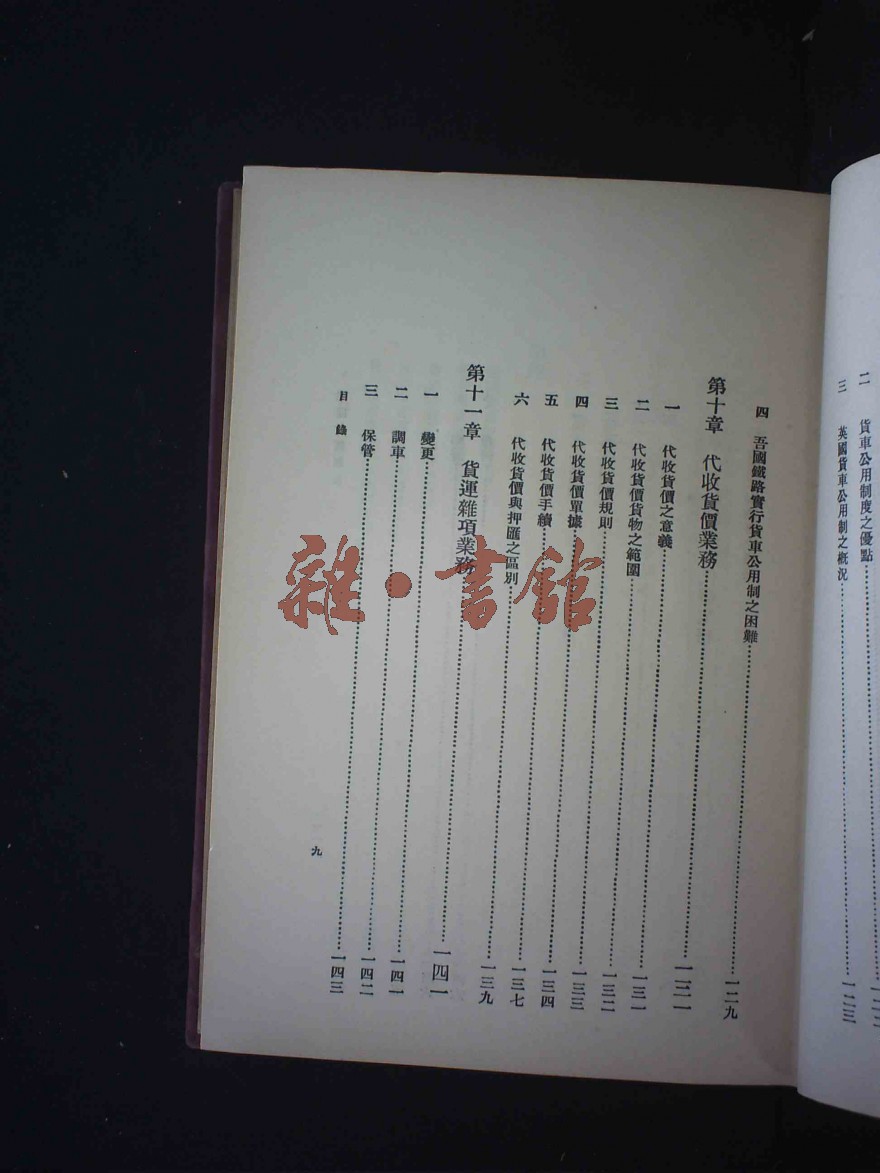 二 貨車公用制度之優點
三 英國貨車公用制之概況……一二三
四 吾國鐵路實行貨車公用制之困難……一二九
第十章 代收貨價業務……一三一
一 代收貨價之意義……一三一
二 代收貨價貨物之範圍……一三二
三 代收貨價規則……一三三
四 代收貨價單據……一三四
五 代收貨價手續……一三七
六 代收貨價與押匯之區別……一三九
第十一章 貨運雜項業務……一四一
一 變更……一四一
二 調車……一四二
三 保管……一四三
目錄
九
雜·書館